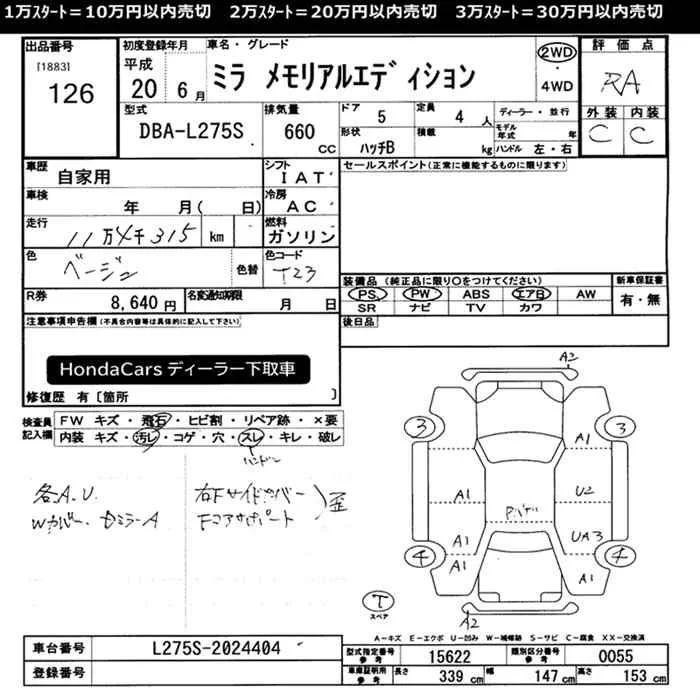 1万ｽﾀｰﾄ＝10万円以内売切　2万ｽﾀｰﾄ＝20万円以内売切　3万ｽﾀｰﾄ＝30万円以内売切
出品番号
[1883]
126
初度登録年月
平成
20 6月
車名・グレード
ミラ メモリアルエディション
2WD
・
4WD
評価点
RA
外装 内装
C C
型式
DBA-L275S
排気量
660 CC
ドア 5
定員 4 人
形状 ハッチB
積載 kg
ディーラー・並行
モデル年式 年
ハンドル 左・右
車歴
自家用
シフト
IAT
セールスポイント(正常に機能するものに限ります)
車検
年 月( 日)
冷房
AC
走行
11万4千315 km
燃料
ガソリン
色
ベージュ
色替
色コード
T23
装備品(純正品に限り〇をつけてください)
PS PW ABS エアB AW
SR ナビ TV カワ
新車保証書
有・無
R券
8,640円
名変通知期限
月 日
後日品
注意事項申告欄(不具合内容等は具体的に記入して下さい)
HondaCars ディーラー下取車
修復歴 有〔箇所 〕
検査員記入欄
FW キズ・飛石・ヒビ割・リペア跡・×要
内装 キズ・汚レ・コゲ・穴・スレ・キレ・破レ
ハンドル
各A.U.
Wカバー. DミラーA
右Fサイドカバー
Fコアサポート
歪
A2
3 3
A1
A1 U2
Rパネル
A1 UA3
4 4
A1 A1
T
スペア
A2
A-キズ E-エクボ U-凹み W-補修跡 S-サビ C-腐食 XX-交換済
車台番号
L275S-2024404
登録番号
型式指定番号 参考
15622
類別区分番号 参考
0055
車庫証明用 参考
長さ 339 cm
幅 147 cm
高さ 153 cm